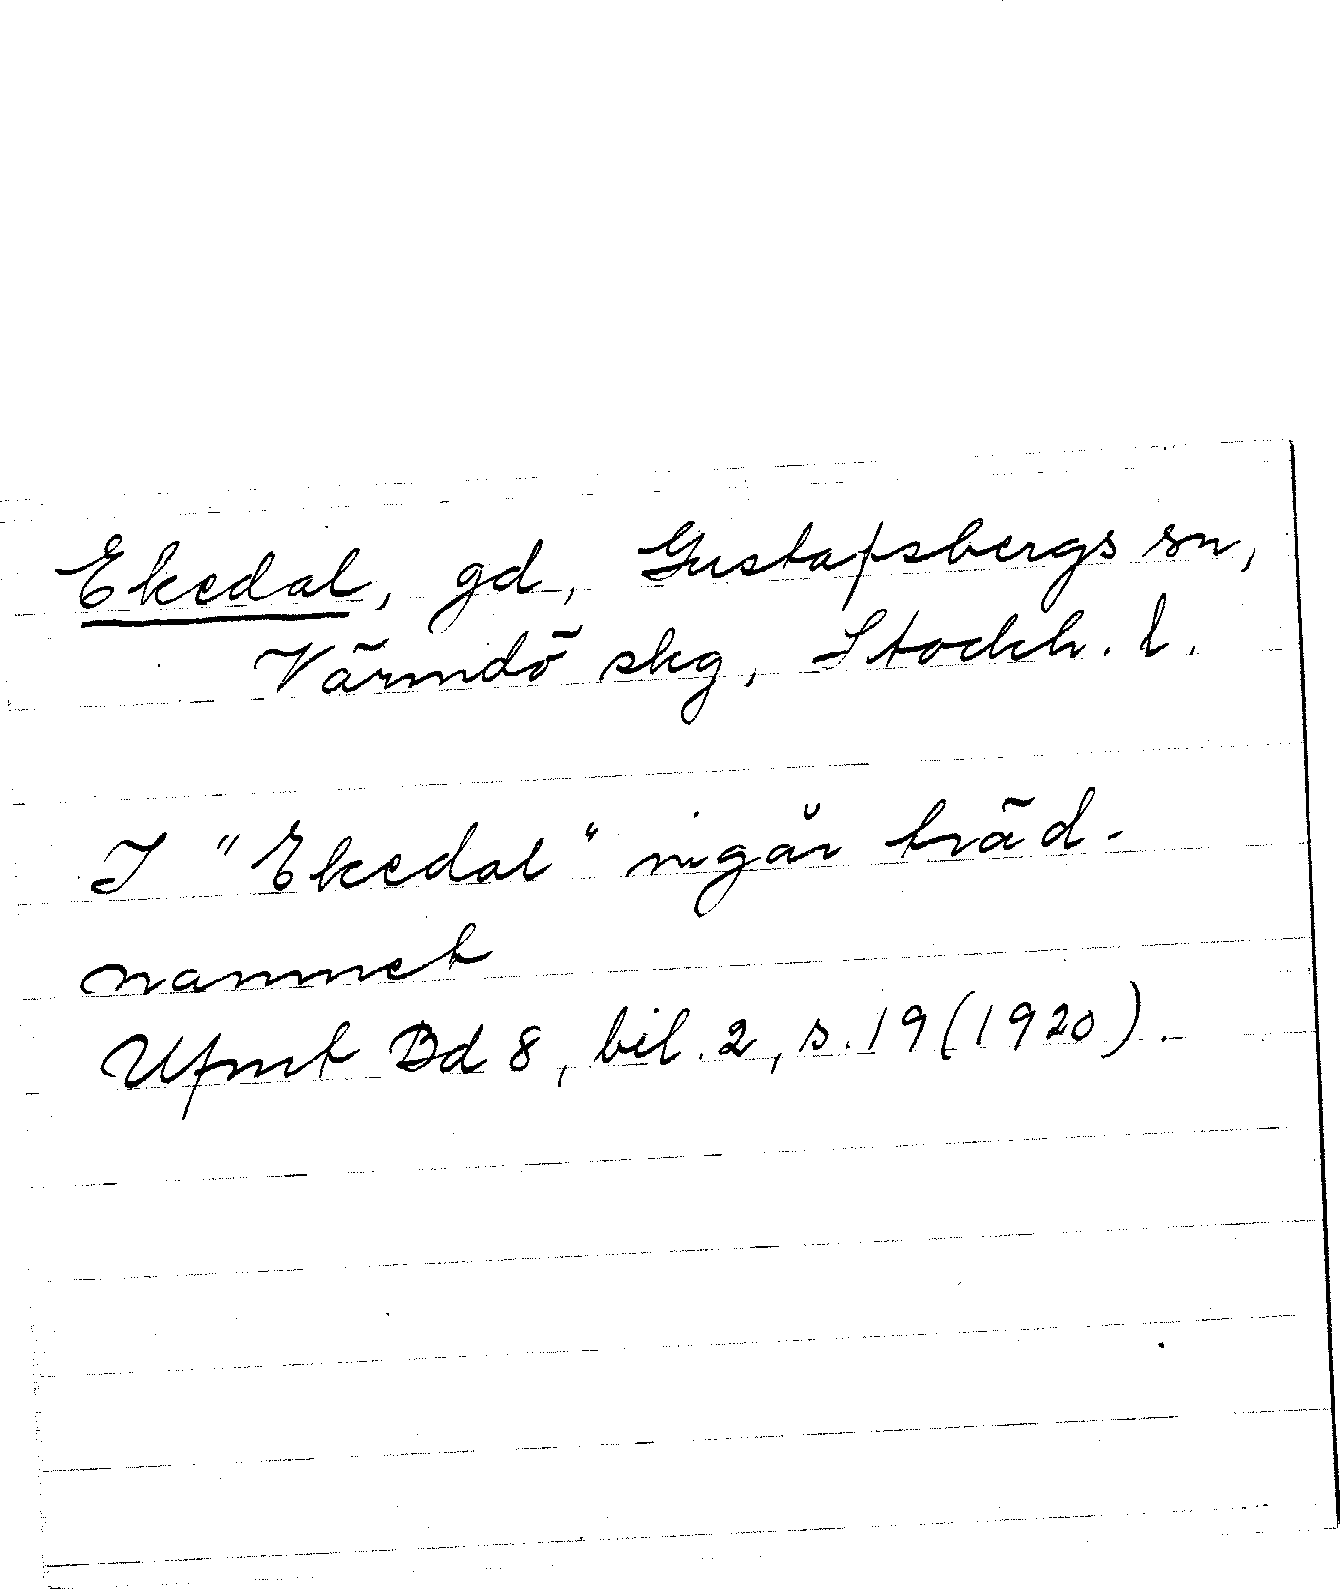 Ekedal, gd, Gustafsbergs sn,
Värmdö skg, Stockh. l.
I "Ekedal" ingår träd-
namnet
Ufmt Bd 8, bil. 2, s. 19 (1920).